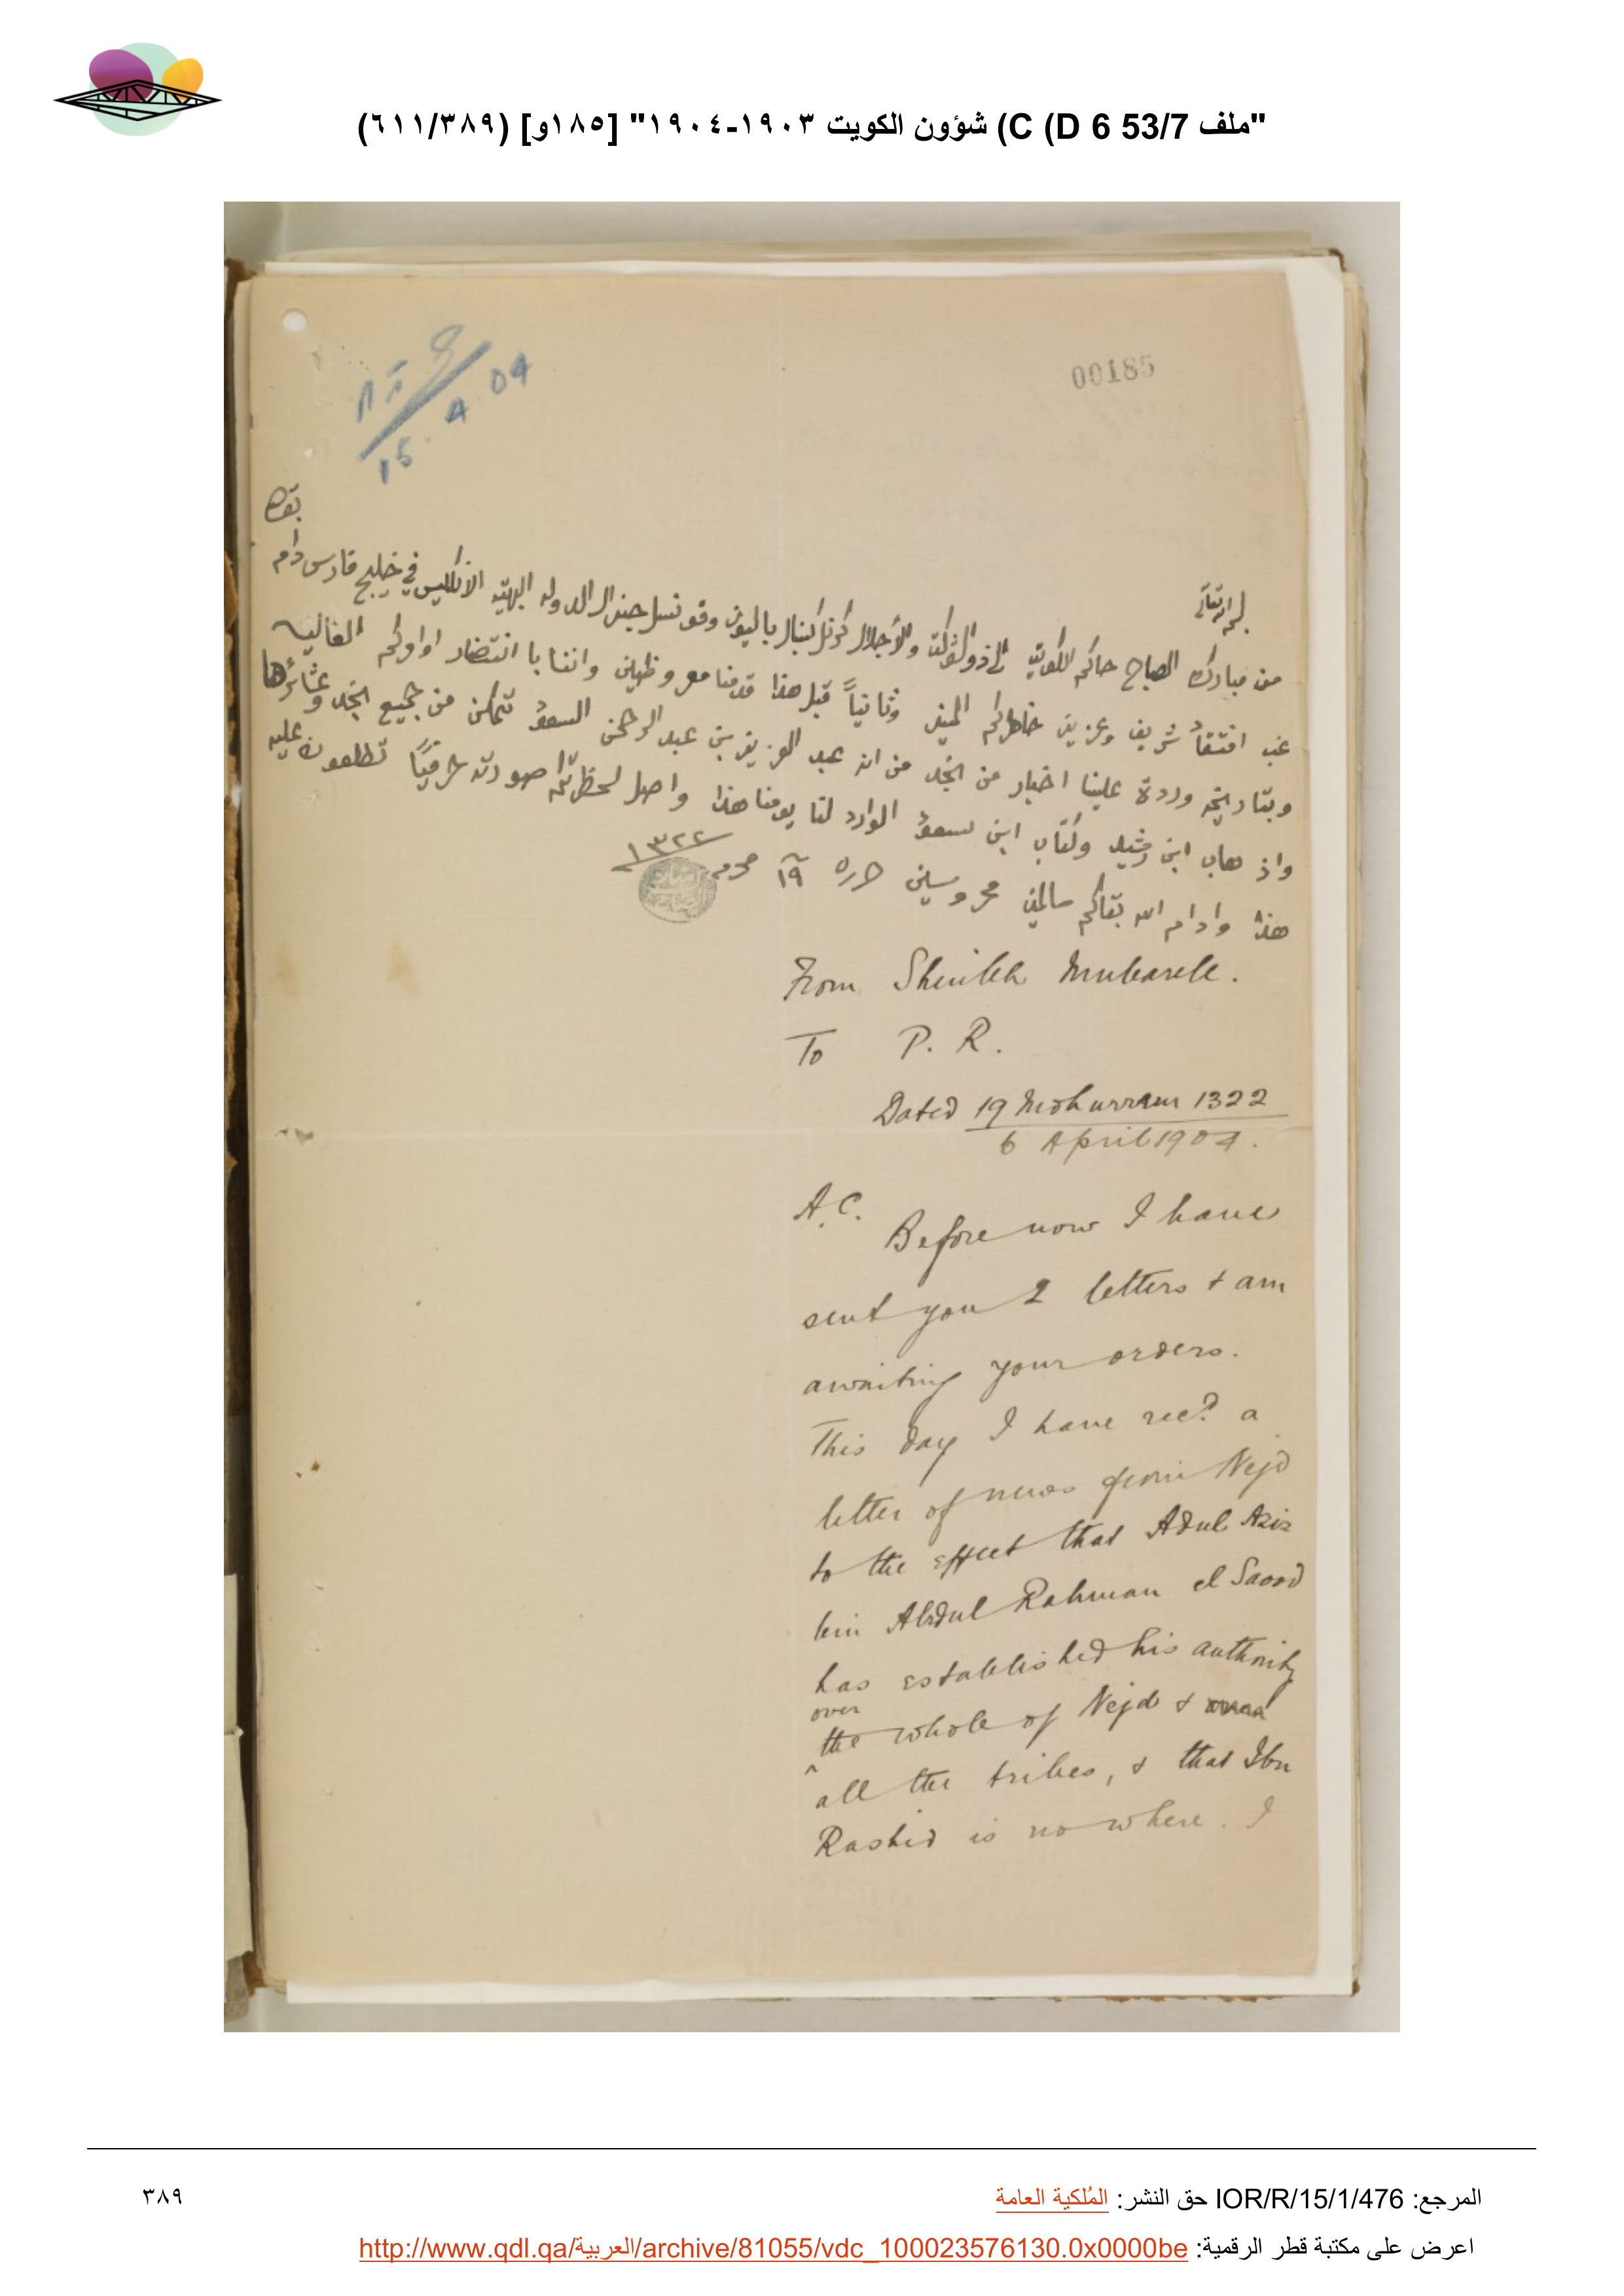 "ملف 53/7 C (D 6) شؤون الكويت ١٩٠٣-١٩٠٤" [١٨٥و] (٦١١/٣٨٩)
00185
15. 4 04
بقاه
من مبارك الصباح حاكم الكويت الى ذو الشوكت والأجلال كرنل كنبال باليوز وقونسل جنرال الدوله البهيّه الانكليس في خليج فارس دام
غب افتقاد شريف وعزيز خاطركم المنير وثانياً قبل هذا قدمنا معروضين واننا با انتضار اوامركم العاليه
وبتاريخه وردة علينا اخبار من النجد من ان عبد العزيز بن عبد الرحمن السعود تمكن من جميع النجد وعشائرها
واذهاب ابن رشيد وكتاب ابن سعود الوارد لنا يومنا هذا واصل لحظرتكم صورته شرفيًا تطلعون عليه
هذا وادام الله بقاكم سالمين محروسين حرره ١٩ محرم ١٣٢٢
From Sheikh Mubarek.
To P. R.
Dated 19 Mohurrem 1322
6 April 1904.
A.C. Before now I have
sent you 2 letters & am
awaiting your orders.
This day I have recd a
letter of news from Nejd
to the effect that Adul Aziz
bin Abdul Rahman el Saood
has established his authority
over
the whole of Nejd &
all the tribes, & that Ibn
Rashid is nowhere. I
المرجع: IOR/R/15/1/476 حق النشر: المُلكية العامة
٣٨٩
اعرض على مكتبة قطر الرقمية: http://www.qdl.qa/العربية/archive/81055/vdc_100023576130.0x0000be